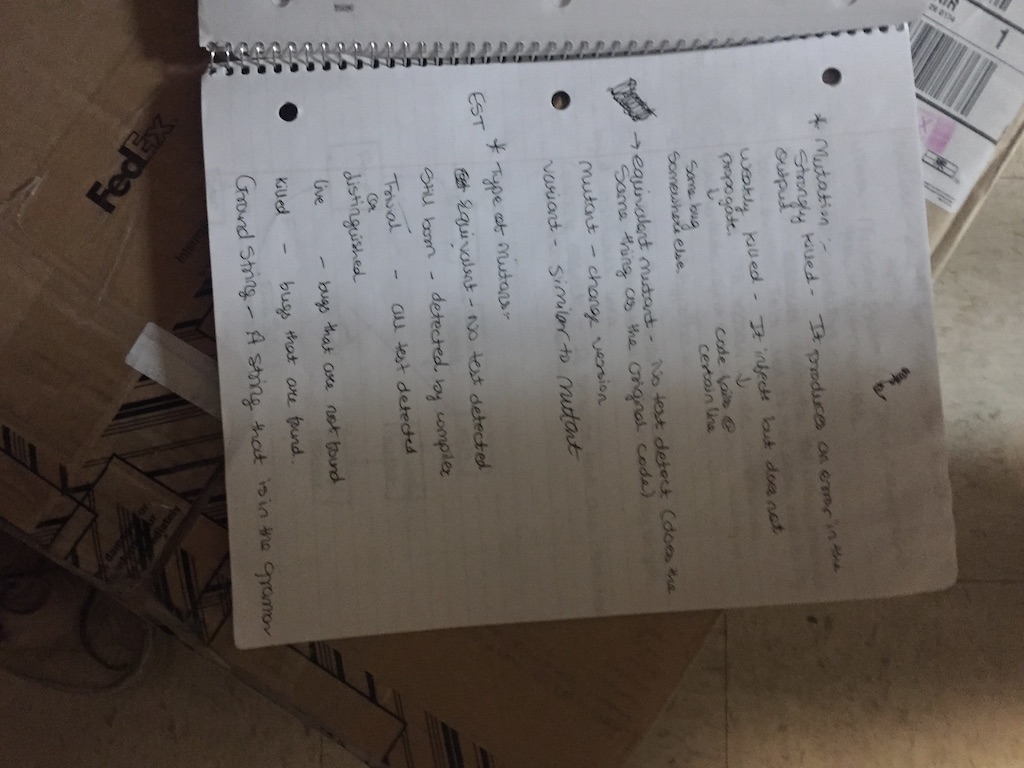 * Mutation :-
Strongly killed - It produces an error in the
output
Weakly killed - It infects but does not
propagate
Some bug
somewhere else
Code fails @
certain line
→ equivalent mutant - No test detect (does the
Same thing as the original code)
Mutant - change version
Variant - similar to mutant
EST * Type of Mutants-
Equivalent - No test detected
Still born - detected by compiler
Trivial - all test detected
or
distinguished
live - bugs that are not found
killed - bugs that are found.
Ground String - A string that is in the grammar
FedEx
1